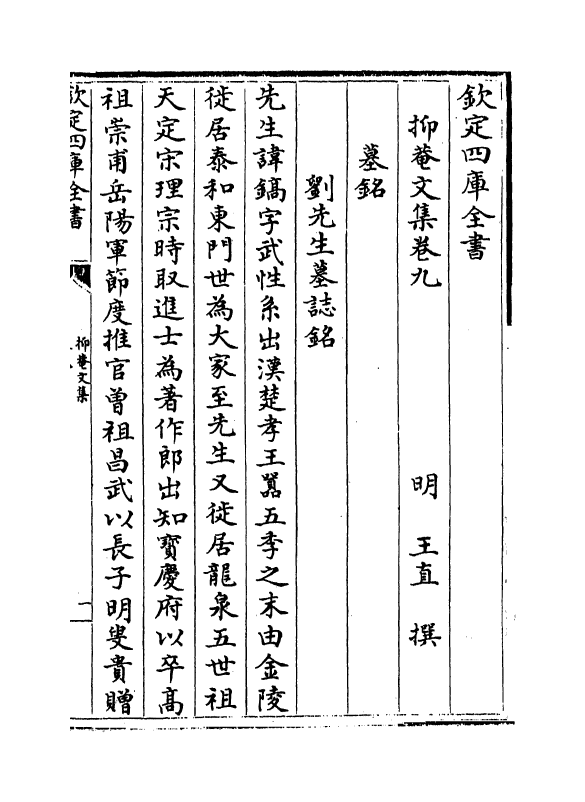 欽定四庫全書
抑菴文集卷九
明 王直 撰
墓銘
劉先生墓誌銘
先生諱鎬字武性系出漢楚孝王囂五季之末由金陵
徙居泰和東門世為大家至先生又徙居龍泉五世祖
天定宋理宗時取進士為著作郎出知寳慶府以卒高
祖崇甫岳陽軍節度推官曽祖昌武以長子明叟貴贈
欽定四庫全書
抑菴文集
一